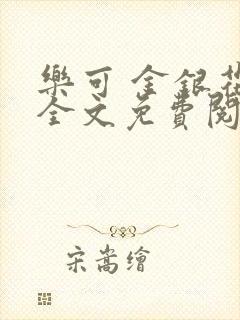 樂可 金銀花
全文免費閱
宋嵩繪